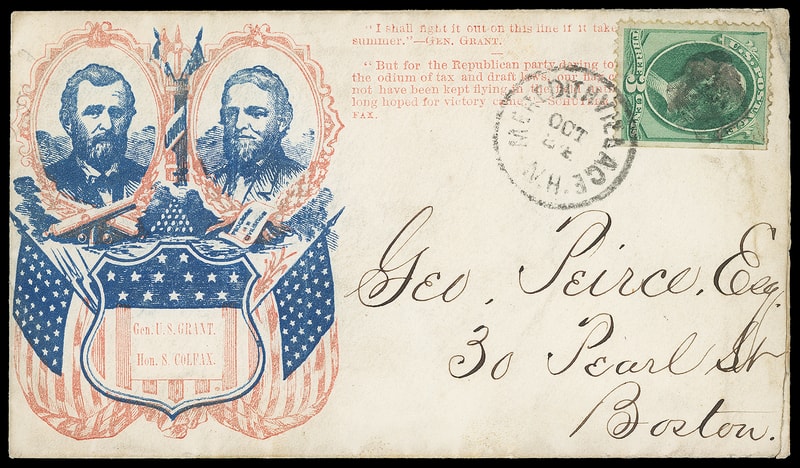 "I shall fight it out on this line if it take
summer."—GEN. GRANT.
"But for the Republican party daring to
the odium of tax and draft laws, our
not have been kept flying in
long hoped for victory SCHUYLER
FAX.
VILLAGE. N.H.
OCT
Gen. U. S. GRANT.
Hon. S. COLFAX.
Geo. Peirce, Esq.
30 Pearl St
Boston.